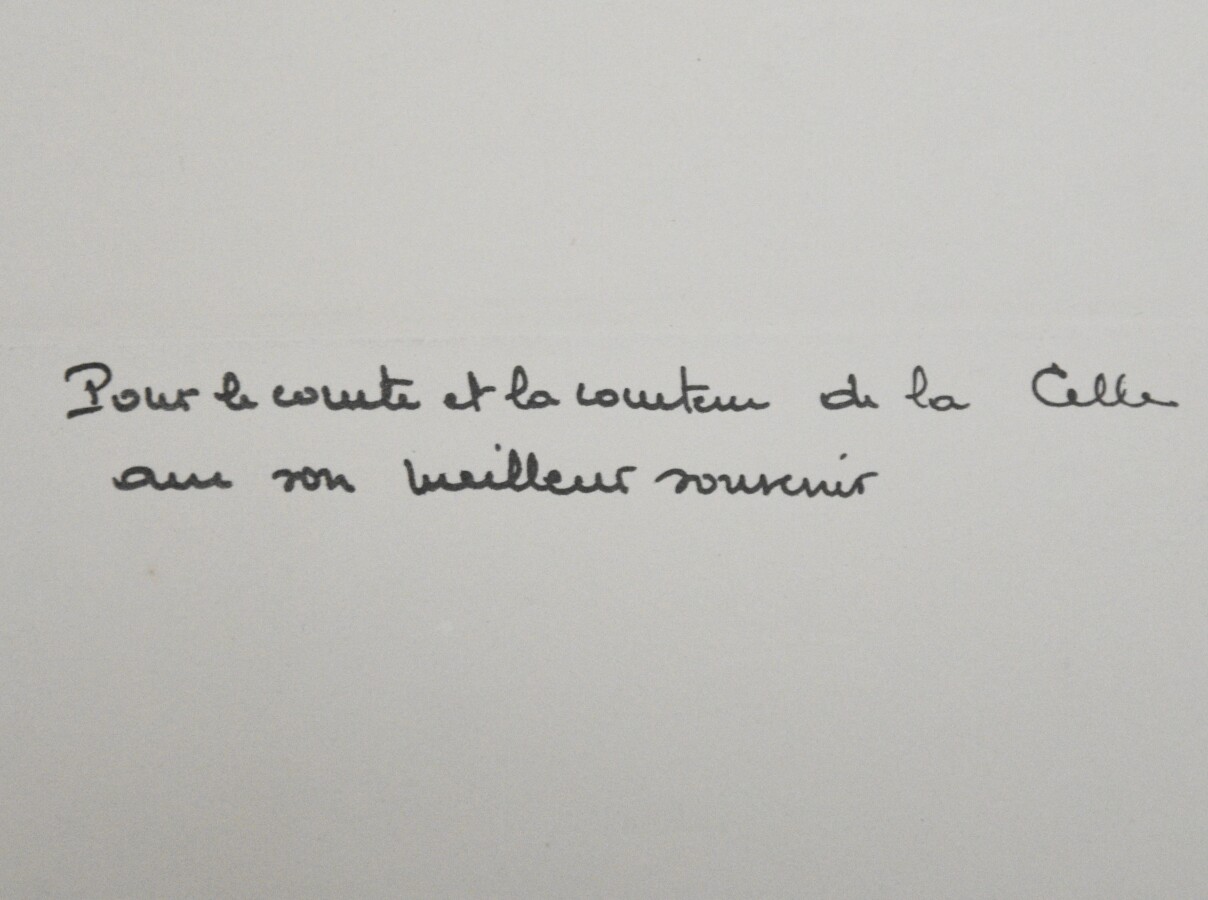 Pour le comte et la comtesse de la Celle
avec son meilleur souvenir